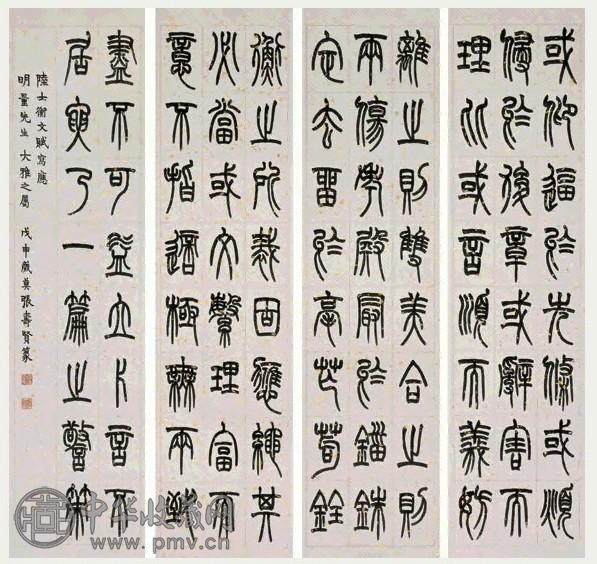 或仰逼於先條或頫
侵於後章或辭害而
理比或言順而義妨
離之則雙美合之則
兩傷考殿最於錙銖
定去留於毫芒苟銓
衡之所裁固應繩其
必當或文繁理富而
意不指適極無兩致
盡不可益立片言而
居要乃一篇之警策
陸士衡文賦寫應
明量先生大雅之屬 戊申歲莫張壽賢篆
中华收藏网
www.pmv.cn